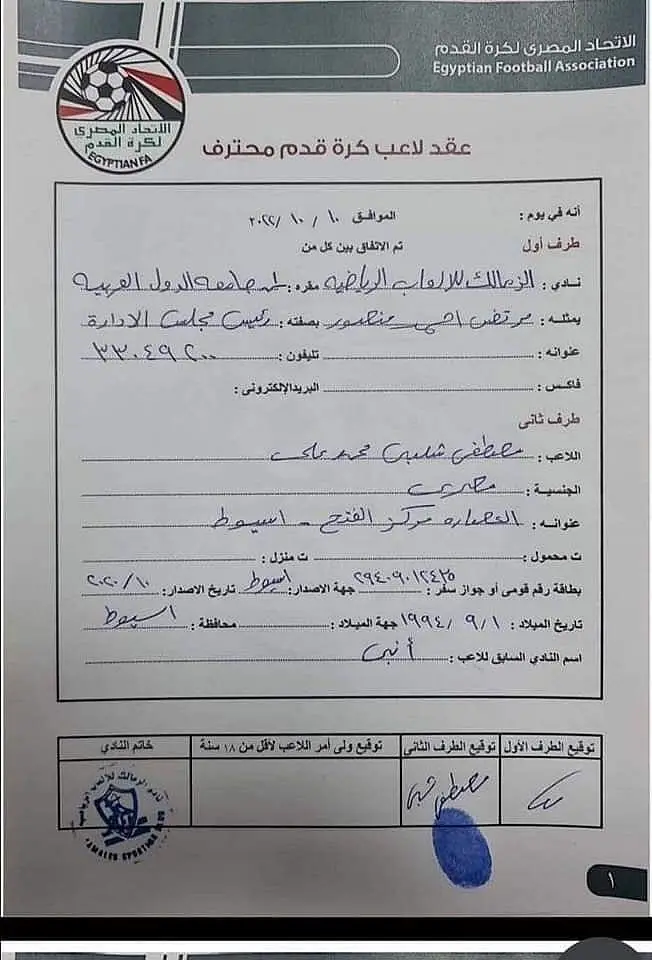 الاتحاد المصرى لكرة القدم
Egyptian Football Association
الاتحاد المصرى
لكرة القدم
EGYPTIAN FA
عقد لاعب كرة قدم محترف
أنه في يوم : الموافق ١٠ / ١٠ / ٢٠٢٢
طرف أول تم الاتفاق بين كل من
نادي : الزمالك للالعاب الرياضيه مقره : جامعة الدول العربية
يمثله : مرتضى احمد منصور بصفته : رئيس مجلس الادارة
عنوانه : تليفون : ٣٣٠٤٩٢٠٠
فاكس : البريد الإلكترونى :
طرف ثانى
اللاعب : مصطفى شلبى محمد على
الجنسية : مصرى
عنوانه : مركز الفتح - اسيوط
ت محمول : ت منزل :
بطاقة رقم قومى أو جواز سفر : جهة الاصدار : اسيوط تاريخ الاصدار : ٢٠٢٠/١٠
تاريخ الميلاد : ١ / ٩ / ١٩٩٤ جهة الميلاد : محافظة : اسيوط
اسم النادي السابق للاعب : أنبى
توقيع الطرف الأول توقيع الطرف الثانى توقيع ولى أمر اللاعب لأقل من ١٨ سنة خاتم النادي
مصطفى
نادى الزمالك للألعاب الرياضية
ZAMALEK SPORTING CLUB
١